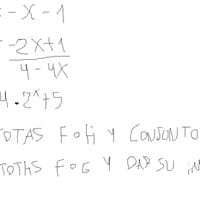 = -x-1
= -2x+1
4-4x
4·2^x+5
TOTAS FoH Y CONJONTO
TOTAS FoG Y DAR SU